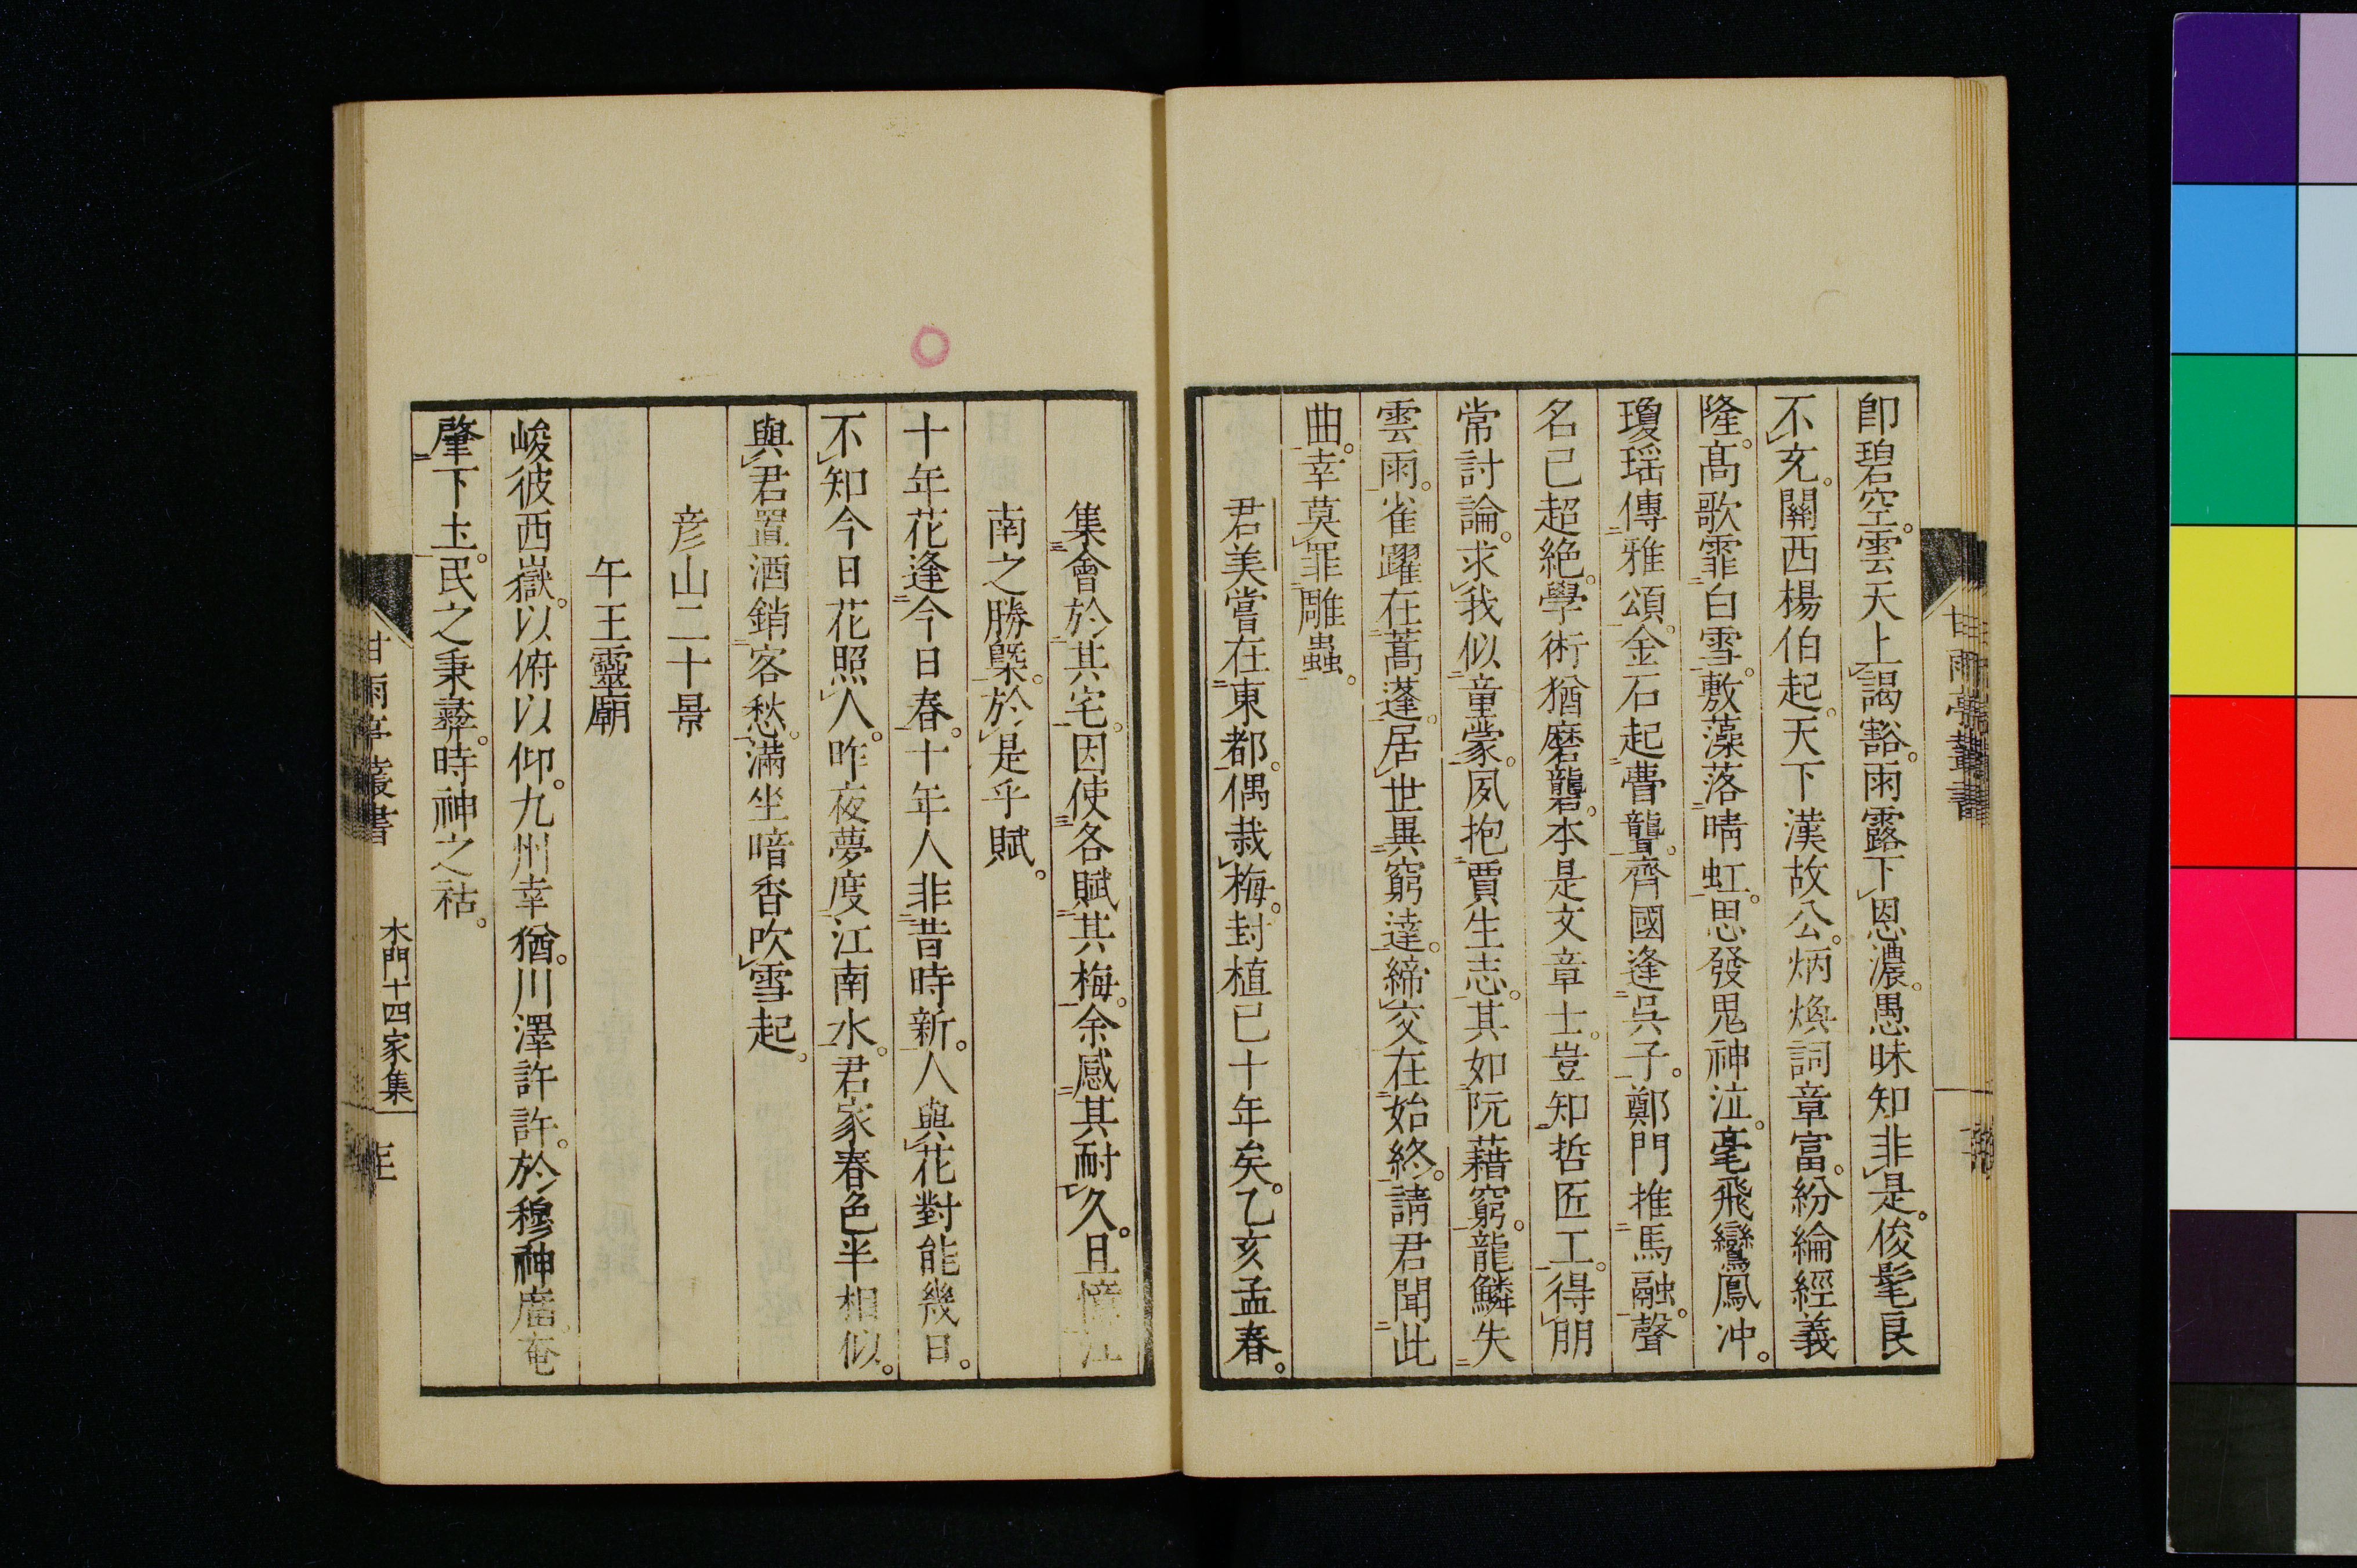 即碧空。雲天上謁豁。雨露下恩濃。愚昧知非是。俊髦良
不充。關西楊伯起。天下漢故公。炳煥詞章富。紛綸經義
隆。高歌霏白雪。敷藻落晴虹。思發鬼神泣。毫飛鸞鳳冲。
瓊瑶傳雅頌。金石起瞢聾。齊國逢吳子。鄭門推馬融。聲
名已超絶。學術猶磨礲。本是文章士。豈知哲匠工。得朋
常討論。求我似童蒙。夙抱賈生志。其如阮藉窮。龍鱗失
雲雨。雀躍在蒿蓬。居世異窮達。締交在始終。請君聞此
曲。幸莫罪雕蟲。
君美嘗在東都。偶栽梅。封植已十年矣。乙亥孟春。
集會於其宅。因使各賦其梅。余感其耐久。且憶江
南之勝槩。於是乎賦。
十年花逢今日春。十年人非昔時新。人與花對能幾日。
不知今日花照人。昨夜夢度江南水。君家春色半相似。
與君置酒銷客愁。滿坐暗香吹雪起。
彦山二十景
午王靈廟
峻彼西嶽。以俯以仰。九州幸猶。川澤訏訏。於穆神廟。奄
肇下土。民之秉彝。時神之祜。
甘雨亭叢書
木門十四家集